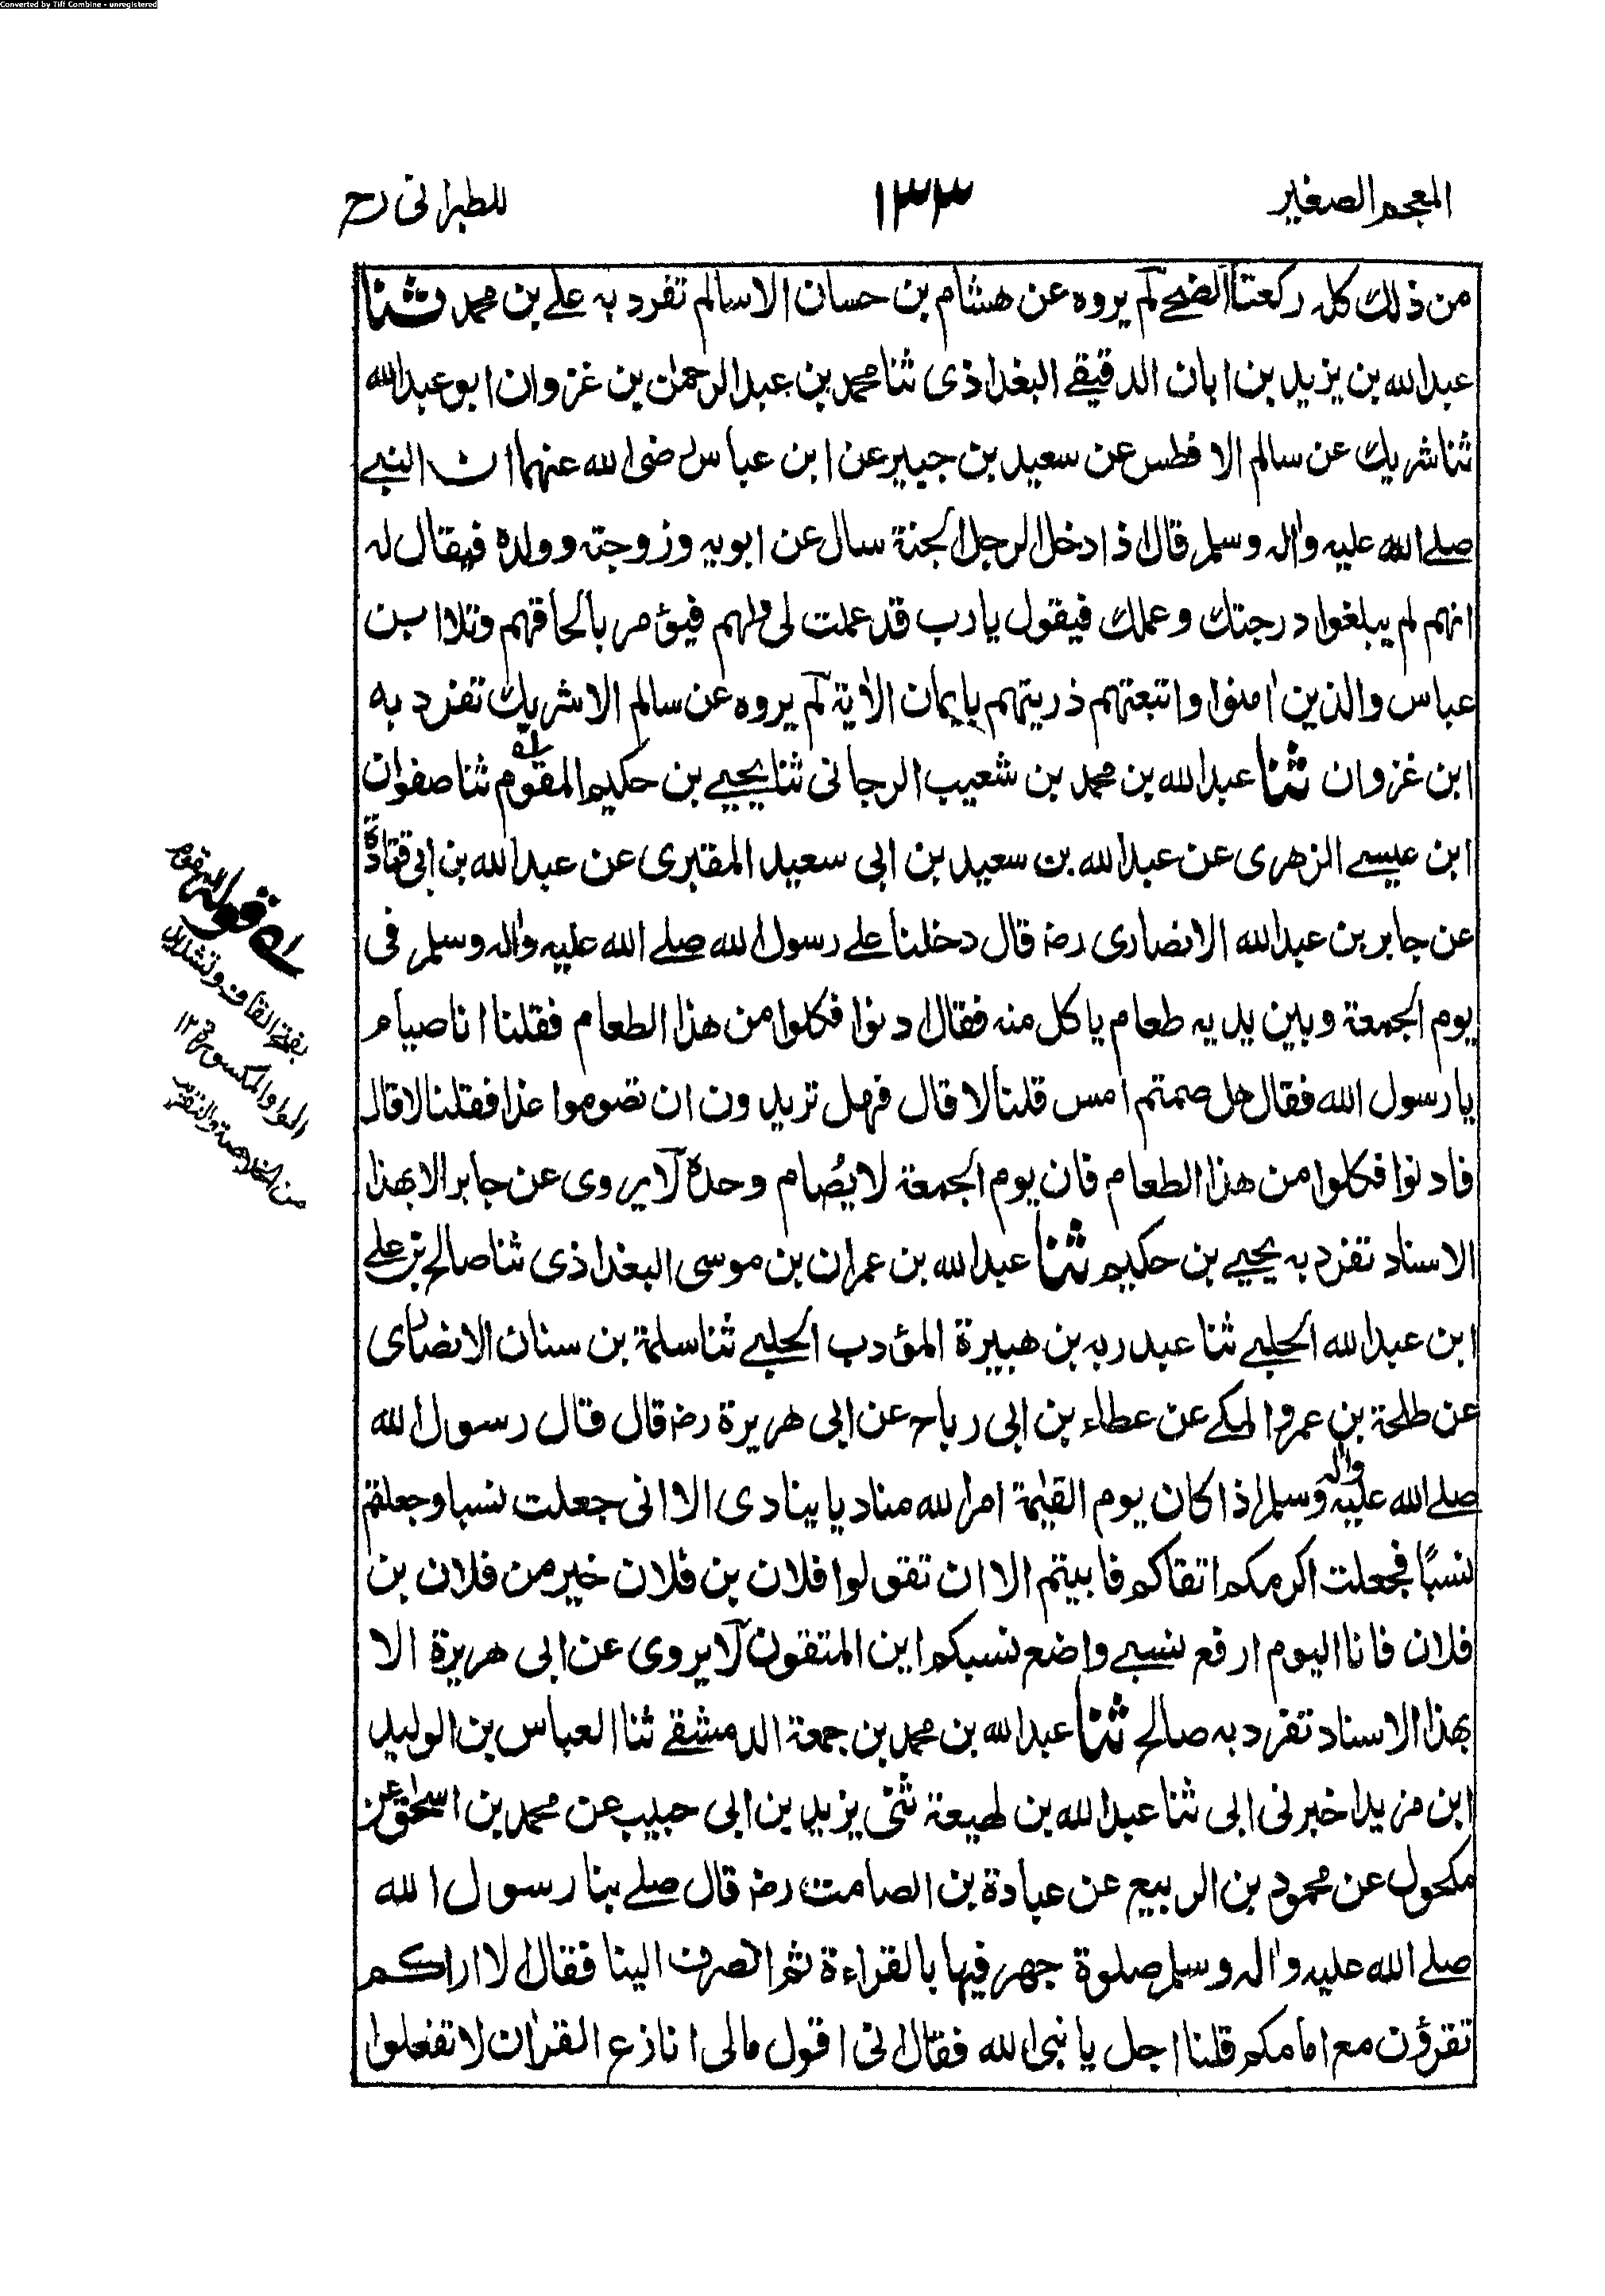 Converted by Tiff Combine - unregistered
المعجم الصغير ١٣٣ للطبرانى رح
من ذلك كله ركعتا الضحے لم يروه عن هشام بن حسان الا سالم تفرد به علے بن محمد ثنا
عبد الله بن يزيد بن ابان الدقيقے البغداذى ثنا محمد بن عبد الرحمن بن غزوان ابو عبد الله
ثنا شريك عن سالم الافطس عن سعيد بن جبير عن ابن عباس رضى الله عنهما ان النبے
صلے الله عليه واٰله وسلم قال اذا دخل الرجل الجنة سال عن ابويه وزوجته وولده فيقال له
انهم لم يبلغوا درجتك وعملك فيقول يا رب قد عملت لى ولهم فيؤمر بالحاقهم وتلا ابن
عباس والذين اٰمنوا واتبعتهم ذريتهم بايمان الاٰية لم يروه عن سالم الا شريك تفرد به
ابن غزوان ثنا عبد الله بن محمد بن شعيب الرجانى ثنا يحيے بن حكيم المقوم ثنا صفوان
ابن عيسے الزهرى عن عبد الله بن سعيد بن ابى سعيد المقبرى عن عبد الله بن ابى قتادة
عن جابر بن عبد الله الانصارى رضـ قال دخلنا علے رسول الله صلے الله عليه واٰله وسلم فى
يوم الجمعة وبين يديه طعام ياكل منه فقال ادنوا فكلوا من هذا الطعام فقلنا انا صيام
يا رسول الله فقال هل صمتم امس قلنا لا قال فهل تريدون ان تصوموا غدا فقلنا لا قال
فادنوا فكلوا من هذا الطعام فان يوم الجمعة لا يصُام وحده لا يروى عن جابر الا بهذا
الاسناد تفرد به يحيے بن حكيم ثنا عبد الله بن عمران بن موسى البغداذى ثنا صالح بن علے
ابن عبد الله الحلبے ثنا عبد ربه بن هبيرة المؤدب الحلبے ثنا سلمة بن سنان الانصارى
عن طلحة بن عمرو المكے عن عطاء بن ابى رباح عن ابى هريرة رضـ قال قال رسول الله
صلے الله عليه واٰله وسلم اذا كان يوم القيٰمة امر الله مناديا ينادى الا انى جعلت نسبا وجعلتم
نسبًا فجعلت اكرمكم اتقاكم فابيتم الا ان تقولوا فلان بن فلان خير من فلان بن
فلان فانا اليوم ارفع نسبے واضع نسبكم اين المتقون لا يروى عن ابى هريرة الا
بهذا الاسناد تفرد به صالح ثنا عبد الله بن محمد بن جمعة الدمشقے ثنا العباس بن الوليد
ابن مزيد اخبرنى ابى ثنا عبد الله بن لهيعة ثنى يزيد بن ابى حبيب عن محمد بن اسحٰق عن
مكحول عن محمود بن الربيع عن عبادة بن الصامت رضـ قال صلے بنا رسول الله
صلے الله عليه واٰله وسلم صلوة جهر فيها بالقراءة ثم انصرف الينا فقال لا اراكم
تقرؤن مع امامكم قلنا اجل يا نبى الله فقال انى اقول مالى انازع القراٰن لا تفعلوا
له قوله المقوم
بفتح القاف وتشديد
الواو المكسورة ١٢
من الخلاصة والتقريب